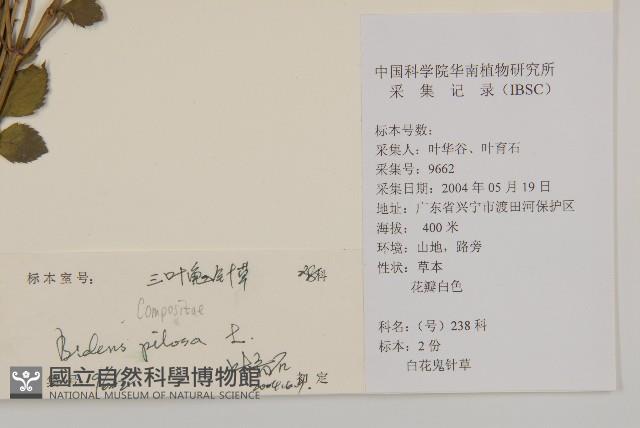 中国科学院华南植物研究所
采 集 记 录（IBSC）
标本号数：
采集人：叶华谷、叶育石
采集号：9662
采集日期：2004 年 05 月 19 日
地址：广东省兴宁市渡田河保护区
海拔： 400 米
环境：山地，路旁
性状：草本
花瓣白色
科名：（号）238 科
标本：2 份
白花鬼针草
标本室号： 三叶鬼针草 科
Compositae
Bidens pilosa L.
定
國立自然科學博物館
NATIONAL MUSEUM OF NATURAL SCIENCE